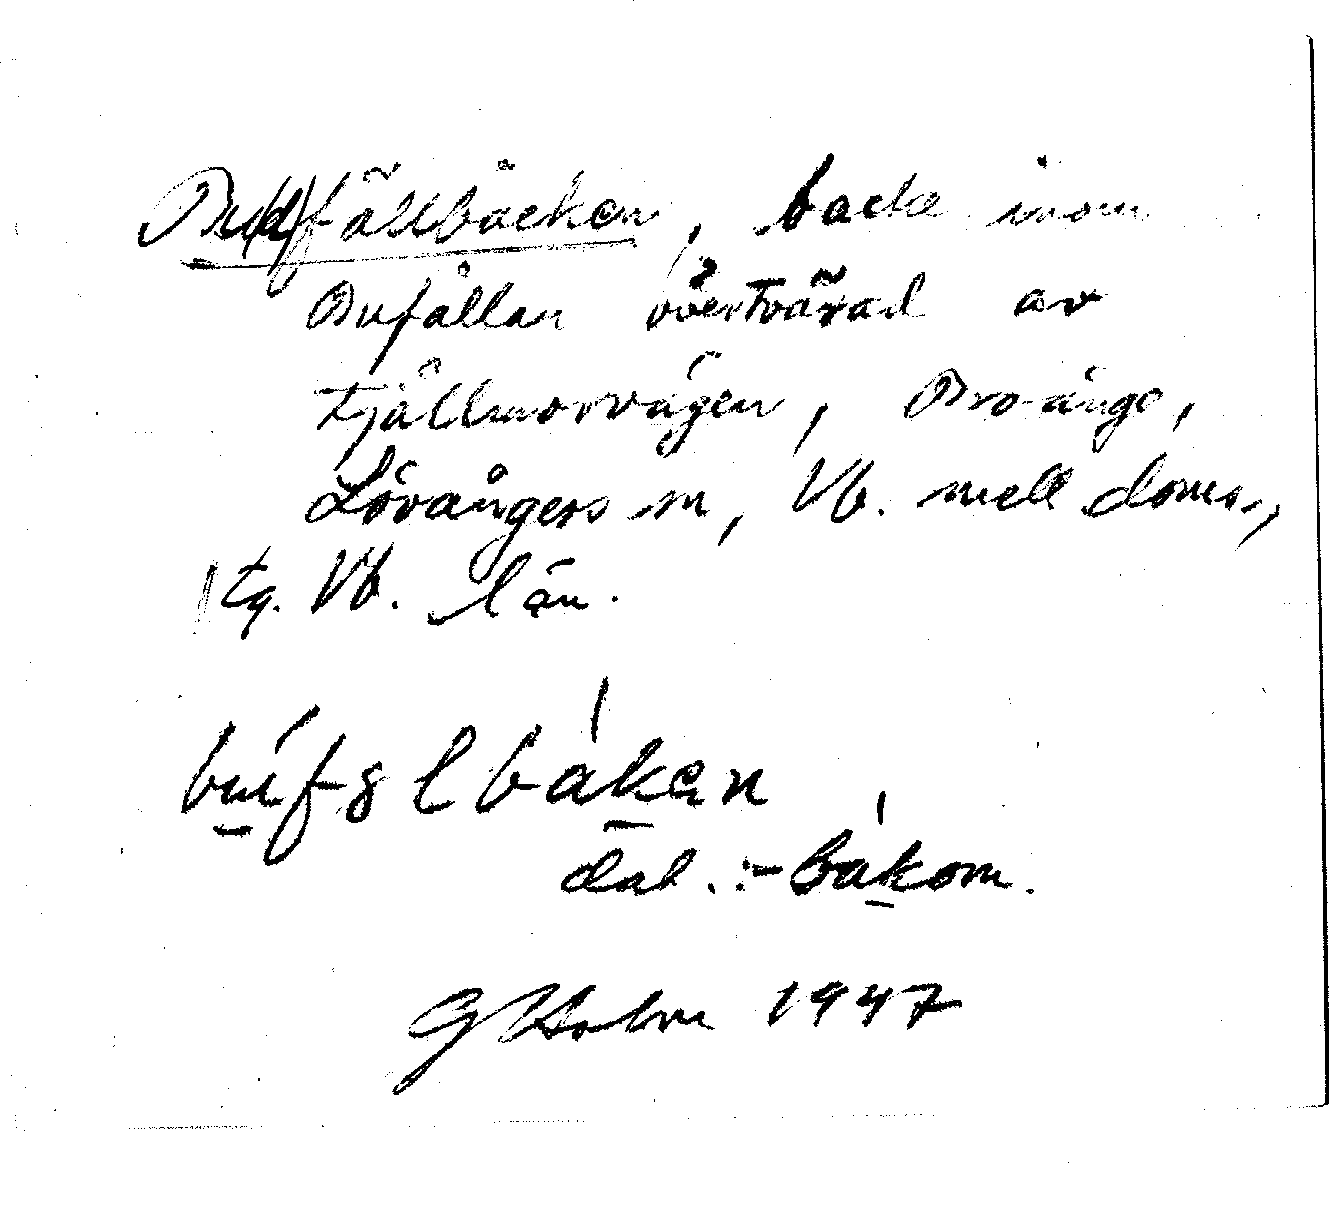 Bu(d)fällbacken, backe inom
Bufällan övertvärad av
Fjällmorvägen, Broänge,
Lövångers sn, Vb. mell doms-
tg. Vb. län.
bufälbaken
dat. :- bakom.
G Holm 1947